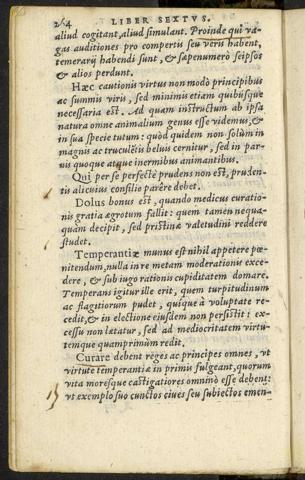 264 LIBER SEXTVS.
aliud cogitant, aliud simulant. Proinde qui va-
gas auditiones pro compertis seu veris habent,
temerarij habendi sunt, & sæpenumerò seipsos
& alios perdunt.
Hæc cautionis virtus non modò principibus
ac summis viris, sed minimis etiam quibúsque
necessaria est. Ad quam instructum ab ipsa
natura omne animalium genus esse videmus, &
in sua specie tutum: quòd quidem non solùm in
magnis ac truculētis beluis cernitur, sed in par-
uis quoque atque inermibus animantibus.
Qui per se perfectè prudens non est, pruden-
tis alicuius consilio parêre debet.
Dolus bonus est, quando medicus curatio-
nis gratia ægrotum fallit: quem tamen nequa-
quàm decipit, sed pristinæ valetudini reddere
studet.
Temperantiæ munus est nihil appetere pœ-
nitendum, nulla in re metam moderationis exce-
dere, & sub iugo rationis cupiditatem domare.
Temperans igitur ille erit, quem turpitudinum
ac flagitiorum pudet, quisque à voluptate re-
cedit, & in electione eiusdem non persistit: ex-
cessu non lætatur, sed ad mediocritatem virtu-
temque quamprimùm redit.
Curare debent reges ac principes omnes, vt
virtute temperantiæ in primis fulgeant, quorum
vita moresque castigatiores omninò esse debent:
vt exemplo suo cunctos ciues seu subiectos emen-